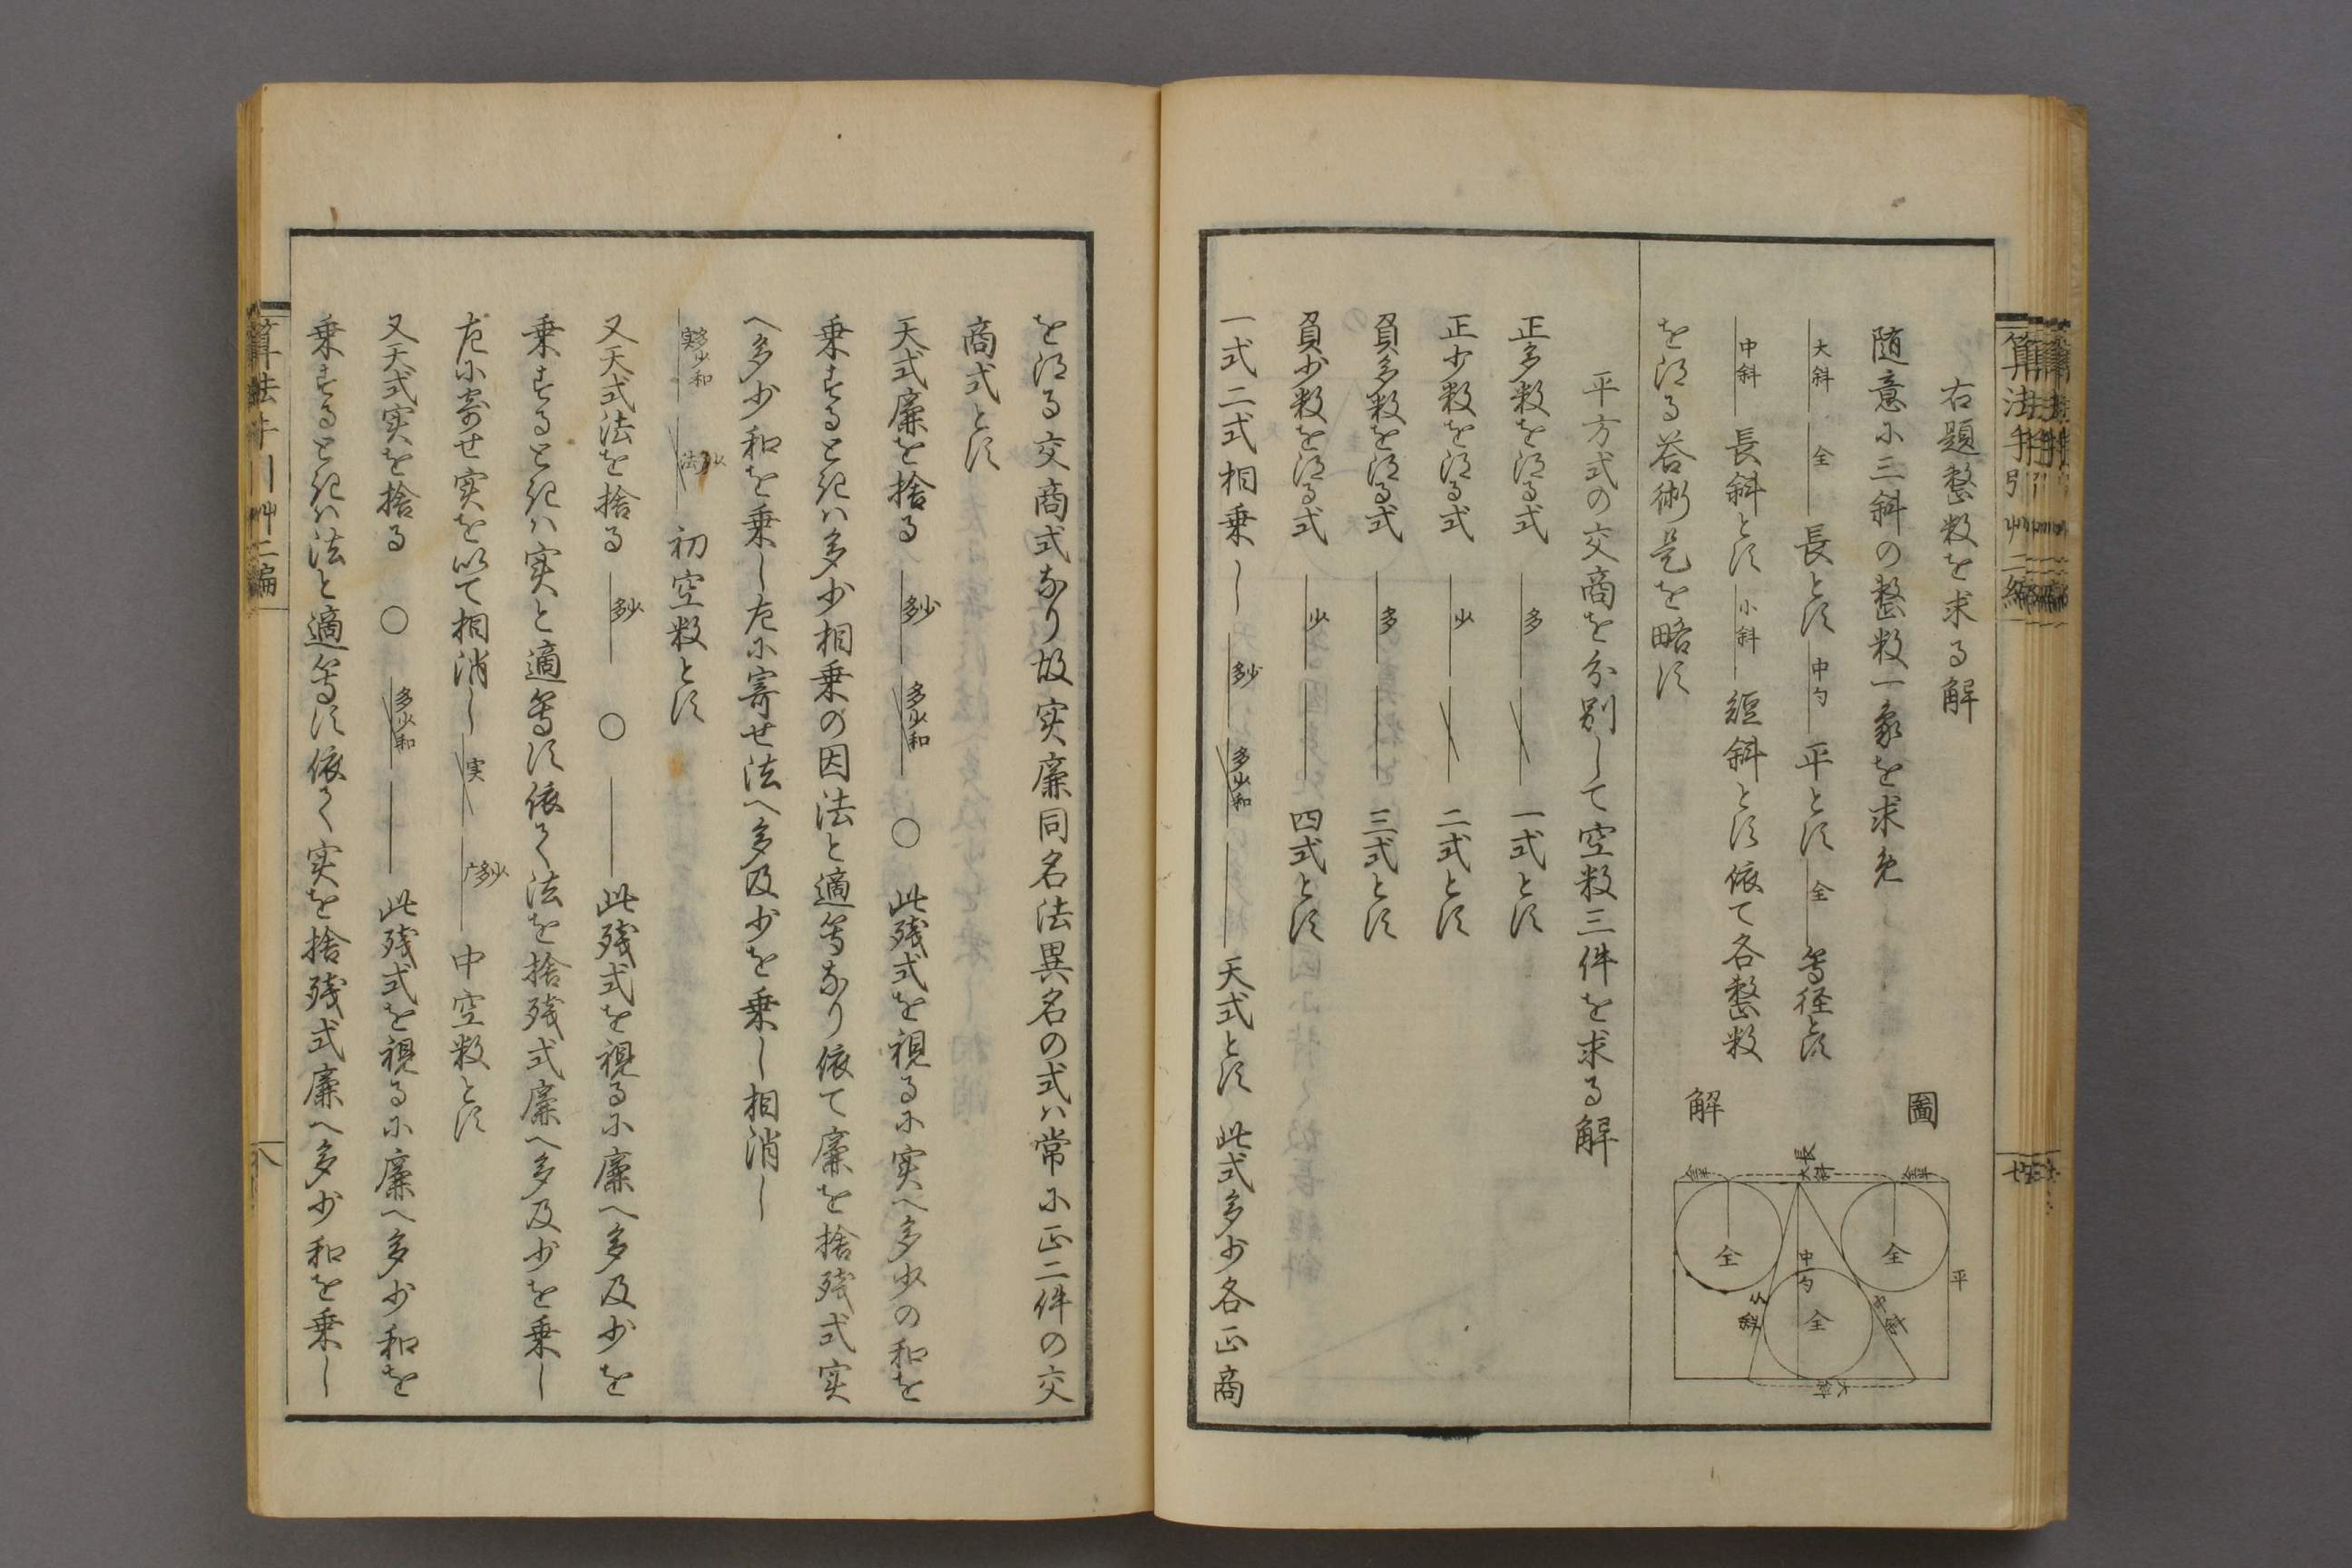 右題整数を求る解
随意に三斜の整数一象を求免
大斜 全 長とす 中勺 平とす 全 等径とす
中斜 長斜とす 小斜 短斜とす 依て各整数
を得る答術是を略す
圖
解
全 全 全
中勺
平
大斜
平方式の交商を分別して空数三件を求る解
正多数を得る式 多 一式とす
正少数を得る式 少 二式とす
負多数を得る式 多 三式とす
負少数を得る式 少 四式とす
一式二式相乗し 多少 多少和 天式とす 此式多少各正商
算法手引艸二編
を得る交商式なり故実廉同名法異名の式ハ常に正二件の交
商式とす
天式廉を捨る 多少 多少和 ○ 此残式を視るに実へ多少の和を
乗するときハ多少相乗の因法と適等なり依て廉を捨残式実
へ多少和を乗し左に寄せ法へ多及少を乗し相消し
実多少和 法多少 初空数とす
又天式法を捨る 多少 ○ 此残式を視るに廉へ多及少を
乗するときハ実と適等す依て法を捨残式廉へ多及少を乗し
左に寄せ実を以て相消し 実 多少 中空数とす
又天式実を捨る ○ 多少和 此残式を視るに廉へ多少和を
乗するときハ法と適等す依て実を捨残式廉へ多少和を乗し
算法手引艸二編
八